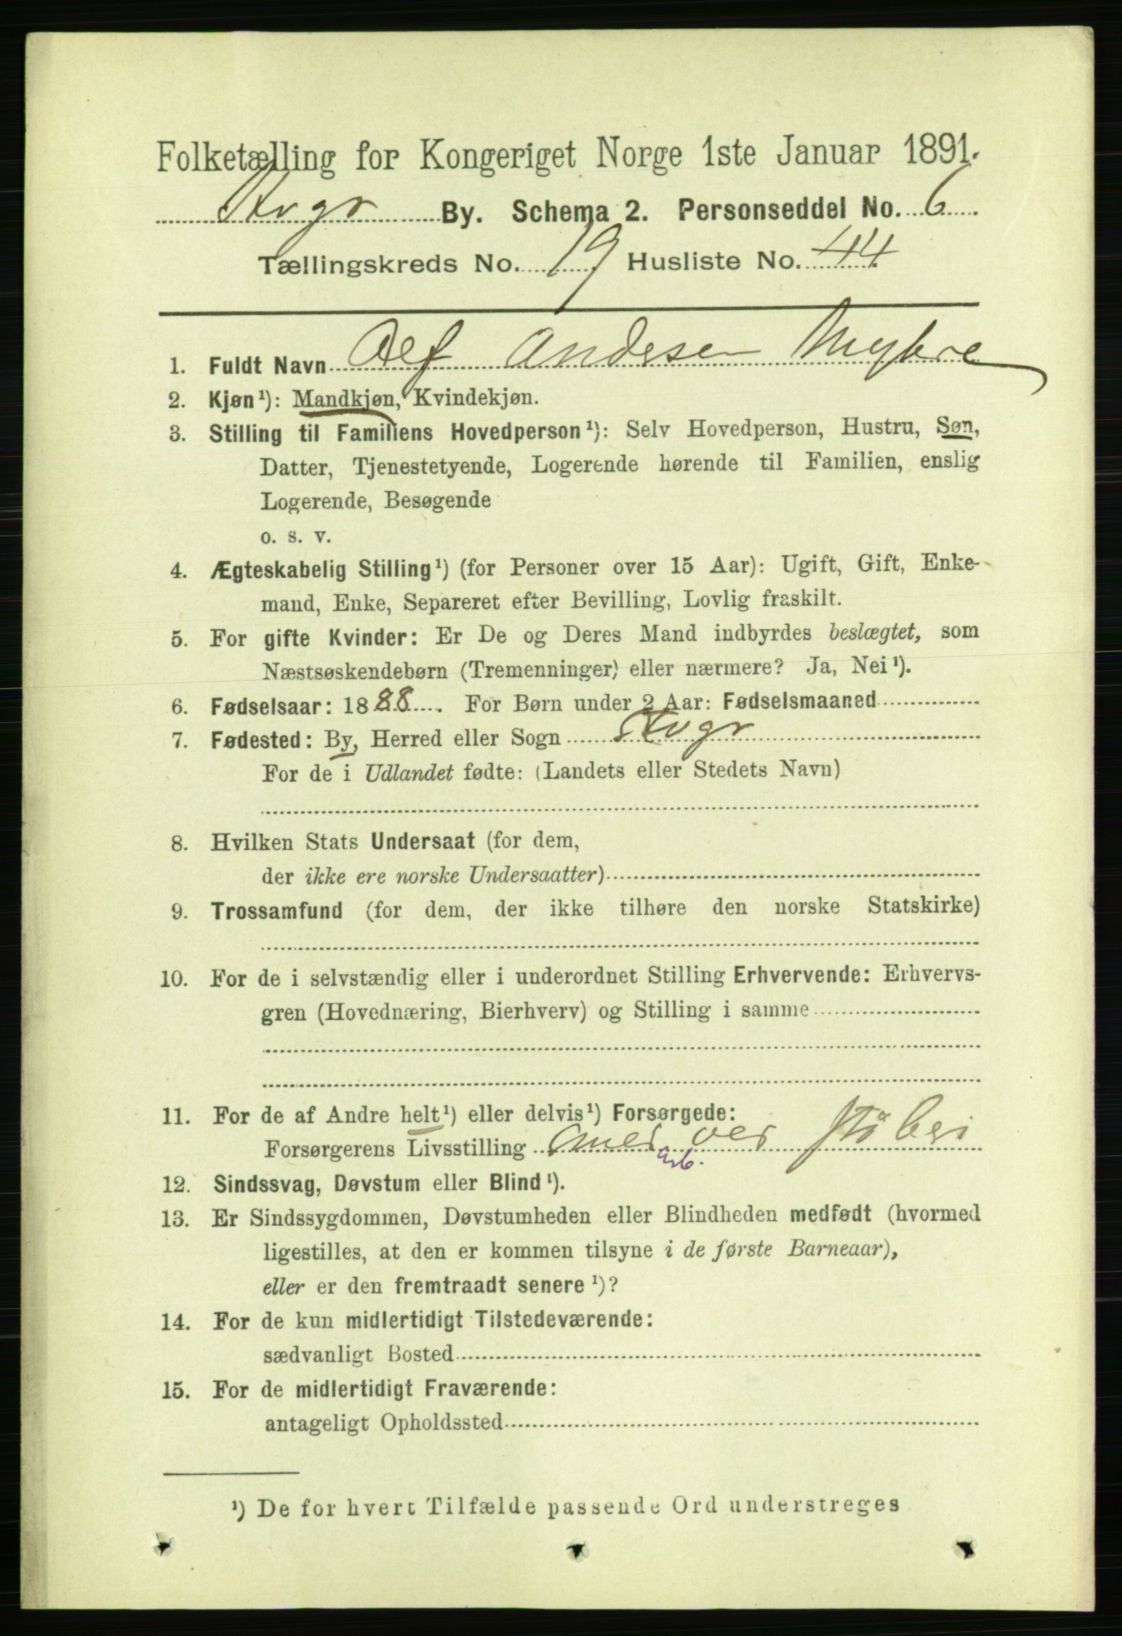 Folketælling for Kongeriget Norge 1ste Januar 1891.
Kvgr By. Schema 2. Personseddel No. 6.
Tællingskreds No. 19 Husliste No. 44
1. Fuldt Navn Alf Andersen Myhre
2. Kjøn¹): Mandkjøn, Kvindekjøn.
3. Stilling til Familiens Hovedperson¹): Selv Hovedperson, Hustru, Søn,
Datter, Tjenestetyende, Logerende hørende til Familien, enslig
Logerende, Besøgende
o. s. v.
4. Ægteskabelig Stilling¹) (for Personer over 15 Aar): Ugift, Gift, Enke-
mand, Enke, Separeret efter Bevilling, Lovlig fraskilt.
5. For gifte Kvinder: Er De og Deres Mand indbyrdes beslægtet, som
Næstsøskendebørn (Tremenninger) eller nærmere? Ja, Nei¹).
6. Fødselsaar: 1888. For Børn under 2 Aar: Fødselsmaaned
7. Fødested: By, Herred eller Sogn Kvgr
For de i Udlandet fødte: (Landets eller Stedets Navn)
8. Hvilken Stats Undersaat (for dem,
der ikke ere norske Undersaatter)
9. Trossamfund (for dem, der ikke tilhøre den norske Statskirke)
10. For de i selvstændig eller i underordnet Stilling Erhvervende: Erhvervs-
gren (Hovednæring, Bierhverv) og Stilling i samme
11. For de af Andre helt¹) eller delvis¹) Forsørgede:
Forsørgerens Livsstilling ved Støberi
arb.
12. Sindssvag, Døvstum eller Blind¹).
13. Er Sindssygdommen, Døvstumheden eller Blindheden medfødt (hvormed
ligestilles, at den er kommen tilsyne i de første Barneaar),
eller er den fremtraadt senere¹)?
14. For de kun midlertidigt Tilstedeværende:
sædvanligt Bosted
15. For de midlertidigt Fraværende:
antageligt Opholdssted
¹) De for hvert Tilfælde passende Ord understreges